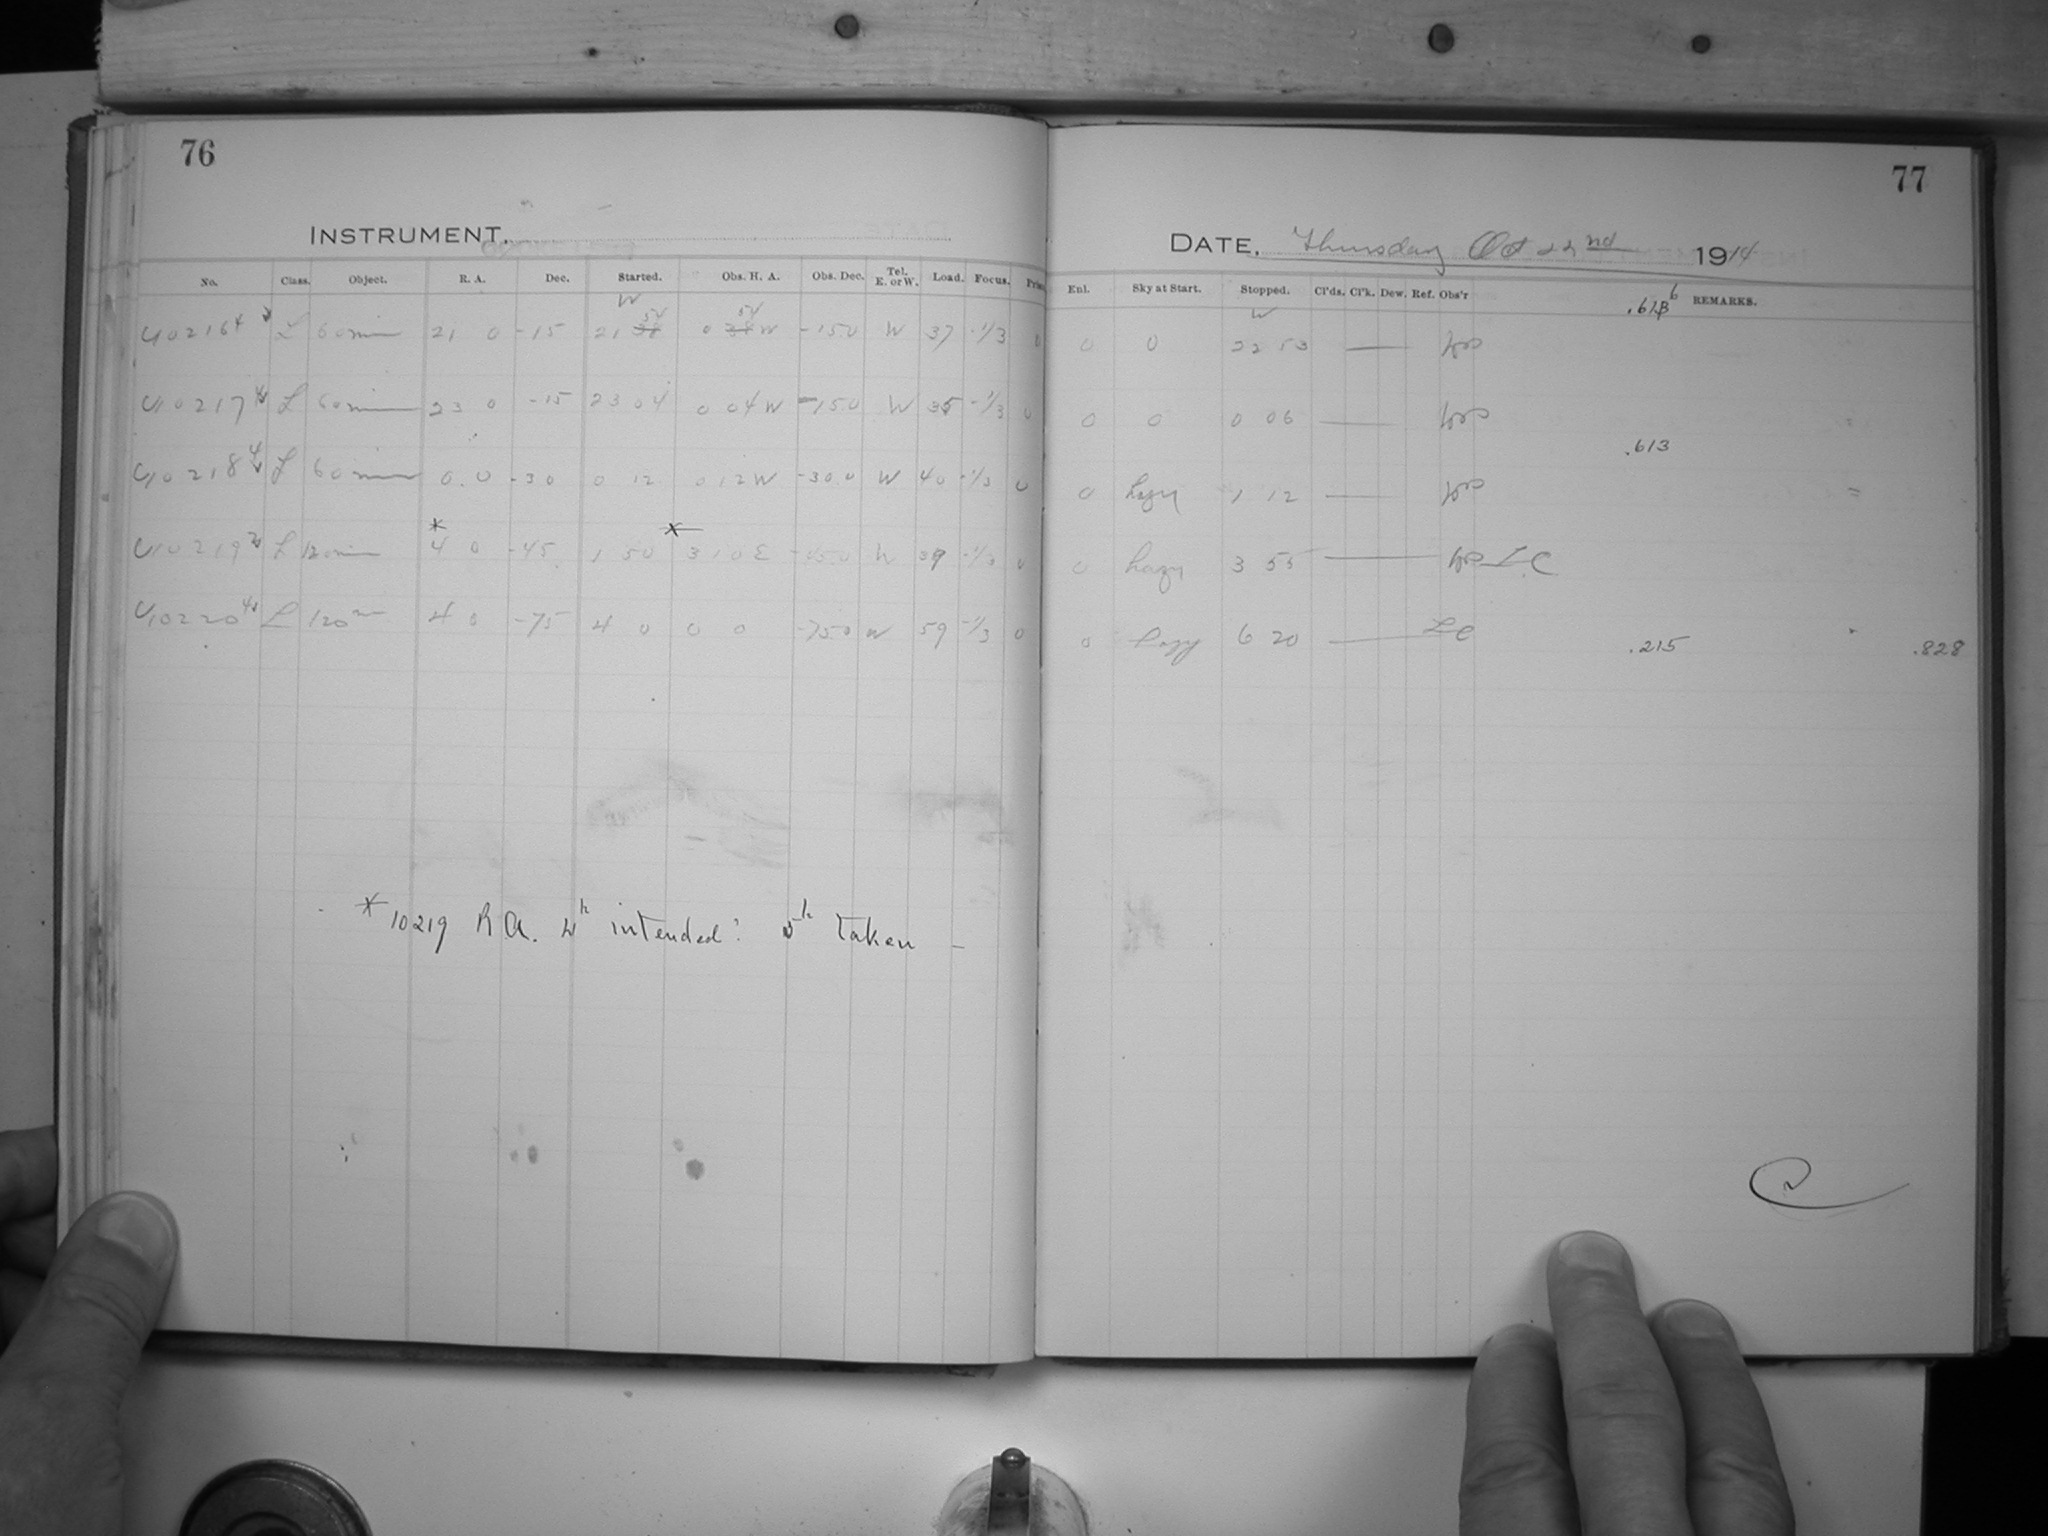 76
77
INSTRUMENT.
DATE. Thursday Oct 22nd 1914
No. Class. Object. R. A. Dec. Started. Obs. H. A. Obs. Dec. Tel. E. or W. Load. Focus.
Enl. Sky at Start. Stopped. Cl'ds. Cl'k. Dew. Ref. Obs'r REMARKS.
W
W
10216 L 60min 21 0 -15 21 54 0 54 W -15.0 W 37 -1/3 0
0 0 22 53
10217 L 60min 23 0 -15 23 04 0 04 W -15.0 W 35 -1/3 0
0 0 0 06
.613
10218 L 60min 0.0 -30 0 12 0 12 W -30.0 W 40 -1/3 0
0 hazy 1 12
* *
10219 L 120min 4 0 -45 1 50 3 10 E -45.0 W 39 -1/3 0
0 hazy 3 55 LC
10220 L 120m 4 0 -75 4 0 0 0 -75.0 W 59 -1/3 0
0 hazy 6 20 LC
.215 .828
* 10219 R A. 4h intended: 5h taken —